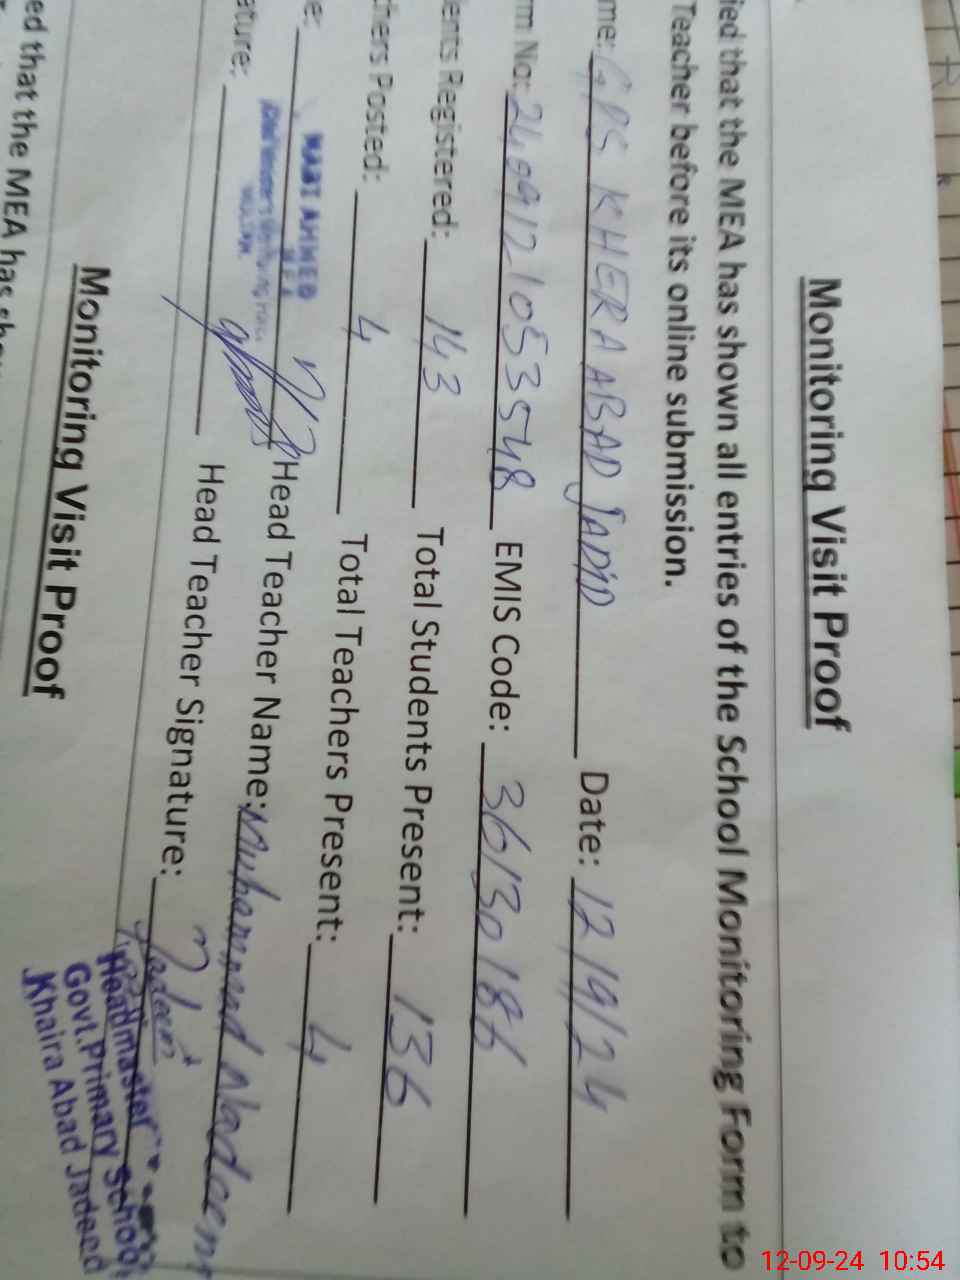 Monitoring Visit Proof
ied that the MEA has shown all entries of the School Monitoring Form to
Teacher before its online submission.
me: GPS KHERA ABAD JADID Date: 12/9/24
rm No: 240912105353548 EMIS Code: 36130186
ents Registered: 143 Total Students Present: 136
chers Posted: 4 Total Teachers Present: 4
e: NASI AHMED Head Teacher Name: Muhammad Nadeem
MEA
MULTAN
ature: Head Teacher Signature: Nadeem
Headmaster
Govt.Primary School
Khaira Abad Jadeed
Monitoring Visit Proof
ed that the MEA has
12-09-24 10:54